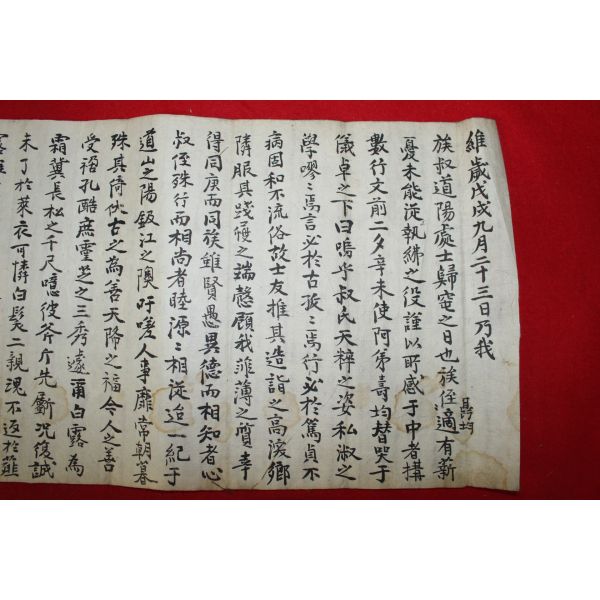 維歲戊戌九月二十三日乃我
族叔道陽處士歸窆之日也族侄昌均適有薪
憂未能從執紼之役謹以所感于中者搆
數行文前二夕辛未使阿弟壽均替哭于
儀卓之下曰嗚乎叔氏天粹之姿私淑之
學嘐〻焉言必於古孜〻焉行必於篤貞不
病固和不流俗故士友推其造詣之高深鄉
隣服其踐履之端慤顧我菲薄之質幸
得同庚而同族雖賢愚異德而相知者心
叔侄殊行而相尚者睦源〻相從迨一紀于
道山之陽鈒江之隩吁嗟人事靡常朝暮
殊其倚伏古之為善天降之福今人之善
受禍孔酷庶靈芝之三秀遽爾白露為
霜冀長松之千尺噫彼斧斤先斸况復誠
未了於萊衣可憐白髮二親魂不返於薤